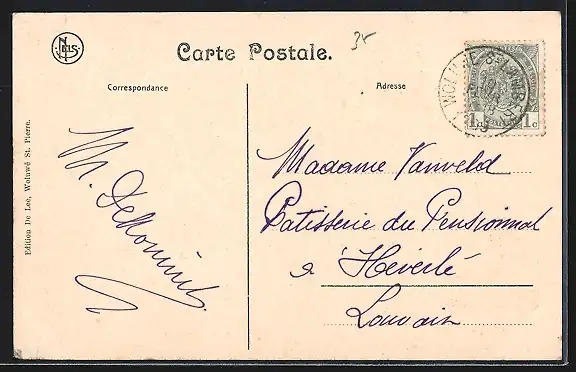 NELS
Carte Postale.
35
Correspondance
Adresse
Edition De Lee, Woluwé St. Pierre.
1c 1c
M.
Madame Vanveld
Patisserie du Pensionnat
à Héverlé
Louvain